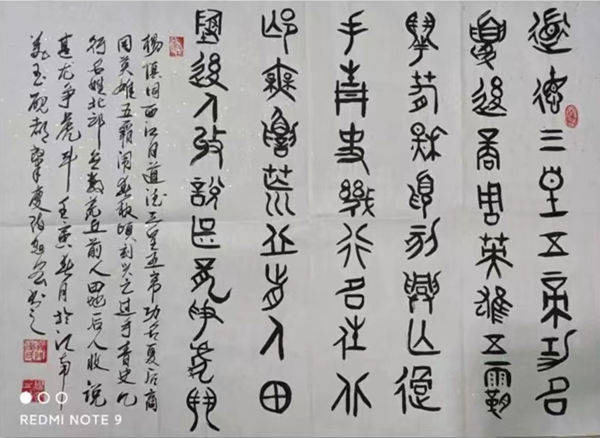 道德三皇五帝功名
夏後商周英雄五霸
鬧春秋頃刻興亡過
手青史幾行名姓北
邙無數荒丘前人田
地後人收說甚龍爭虎鬥
楊慎词西江月道德三皇五帝功名夏后商
周英雄五霸闹春秋顷刻兴亡过手青史几
行名姓北邙無数荒丘前人田地后人收说
甚龙争虎斗壬寅春月於江南
砚都肇慶书之
REDMI NOTE 9